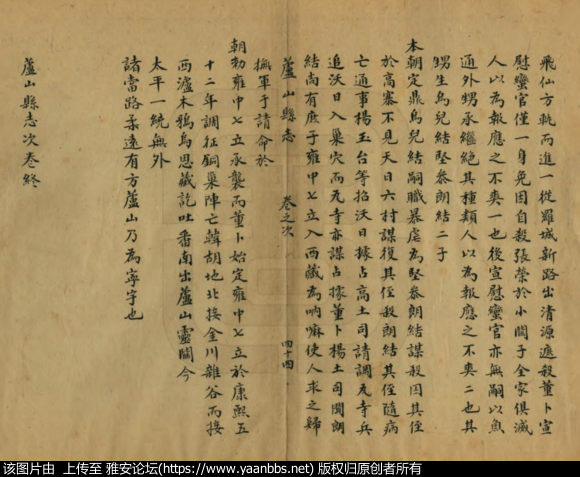 飛仙方軌而進一從羅城新路出清源遮殺董卜宣
慰蠻官僅一身免因自殺張榮於小關子全家俱滅
人以為報應之不爽一也後宣慰蠻官亦無嗣以魚
通外甥承繼絕其種類人以為報應之不爽二也其
甥生鳥兒結堅參朗結二子
本朝定鼎鳥兒結嗣職暴虐為堅參朗結謀殺因其侄
於高寨不見天日六村謀復其侄殺朗結其侄隨病
亡通事楊玉台等招沃日據占高土司請調瓦寺兵
追沃日入巢穴而瓦寺亦謀占據董卜楊土司聞朗
結尚有庶子雍中七立入西藏為喇嘛使人求之歸
蘆山縣志 卷之次 四十四
撫軍于請命於
朝勑雍中七立承襲而董卜始定雍中七立於康熙五
十二年調征銅巢陣亡韓胡地北接金川雜谷而接
西瀘木鴉烏思藏訖吐番南出蘆山靈關今
太平一統無外
諸當路柔遠有方蘆山乃為寧宇也
蘆山縣志次卷終
该图片由 上传至 雅安论坛(https://www.yaanbbs.net) 版权归原创者所有